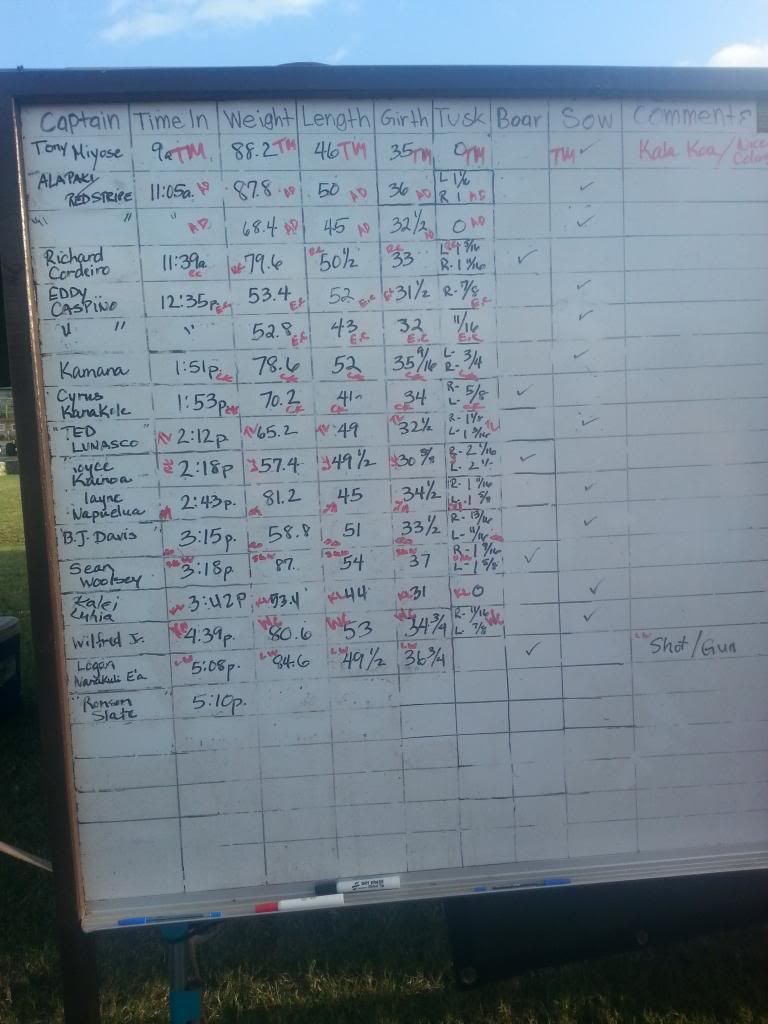 Captain Time In Weight Length Girth Tusk Boar Sow Comments
Tony Miyose 9a TM 88.2 TM 46 TM 35 TM 0 TM TM ✓ Kala Koa / Nice
ALAPAKI
REDSTRIPE 11:05a. AD 87.8 AD 50 AD 36 AD L 1 1/6 R 1 AD ✓
" " " AD 68.4 AD 45 AD 32 1/2 AD 0 AD ✓
Richard
Cordeiro 11:39a RC RC 79.6 RC 50 1/2 RC 33 RC L- 1 3/16 R- 1 11/16 ✓
EDDY
CASPINO 12:35p E.C 53.4 E.C 52 E.C E.C 31 1/2 R- 7/8 E.C ✓
" " " 52.8 E.C 43 E.C 32 E.C 11/16 E.C ✓
Kamana 1:51p. 78.6 52 35 9/16 L- R- 3/4 ✓
Cyrus
Kanakole 1:53p 70.2 41 34 R- L- 5/8 ✓
"TED
LUNASCO" 2:12p 65.2 49 32 1/2 R- 1 1/8 L- 1 3/16 ✓
Joyce
Kainoa 2:18p 57.4 49 1/2 30 5/8 R- 2 1/16 L- 2 ✓
Layne
Napuelua 2:43p. 81.2 45 34 1/2 R- 1 L- 1 ✓
B.J. Davis 3:15p. 58.8 51 33 1/2 R- 13/16 L- 11/16 ✓
Sean
Woolsey SW 3:18p 87. 54 37 R- 1 9/16 L- 1 5/8 ✓
Kalei
3:42P KL 44 KL 31 KL 0 ✓
Wilfred Jr. 4:39p. WC 80.6 WC 53 WC 34 3/4 R- 11/16 L- 7/8 WC ✓
Logan
Nanakuli E'a LW 5:08p. LW 84.6 LW 49 1/2 LW 36 3/4 ✓ LW Shot/Gun
"Ronson
Slate 5:10p.